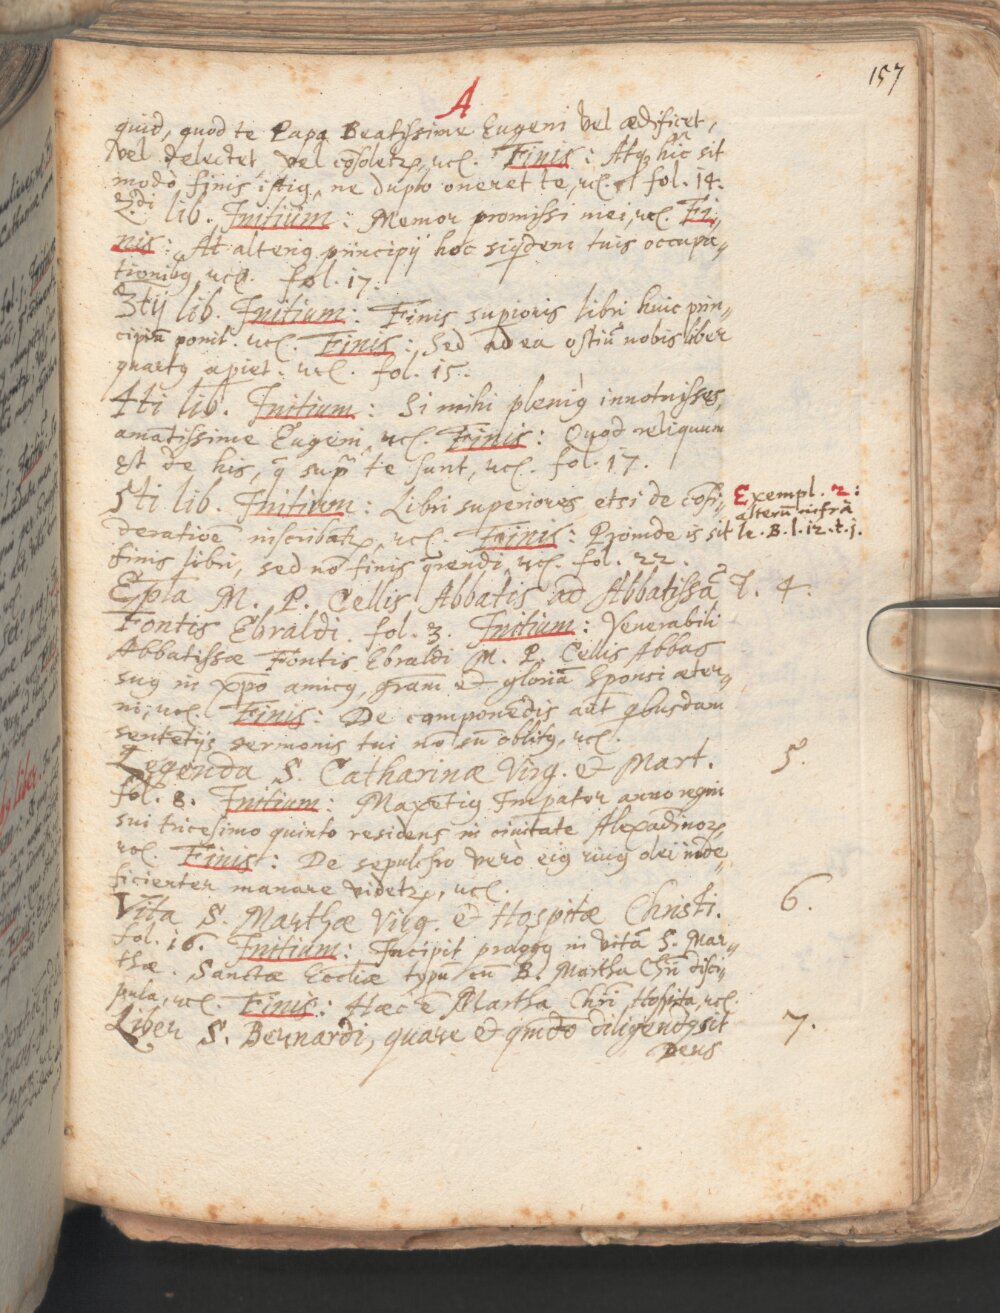 157
A
quid, quod te Papa Beatissime Eugeni vel ædificet,
vel delectet vel cōsoletr, ꝛcʃ. Finis: Atqꝫ hic sit
modò finis istiꝰ, ne duplo oneret te, ꝛcʃ. fol. 14.
2.di lib. Initium: Memor promissi mei, ꝛcʃ. Fi„
nis: At alteriꝰ principij hoc siqdem tuis occupa„
tionibꝰ ꝛcʃ. fol. 17.
3tij lib. Initium: Finis supioris libri huic prin„
cipiū ponit. ꝛcʃ. Finis: Sed ad ea ostiū nobis liber
quartꝰ apiet. ꝛcʃ. fol. 15.
4ti lib. Initium: Si mihi pleniꝰ innotuisses,
amātissime Eugeni, ꝛcʃ. Finis: Quod reliquum
est de his, q̄ supr te sunt, ꝛcʃ. fol. 17.
5ti lib. Initium: Libri superiores etsi de cōsi„
deratiōe inscribātr, ꝛcʃ. Finis: Proinde is sit
finis libri, sed nō finis q̄rendi, ꝛcʃ. fol. 22.
Exempl. 2:
alterū infrà
le. B. l. 12. t. j.
Ep̄la M. P. Cellis Abbatis ad Abbatissā
Fontis Ebraldi. fol. 3. Initium: Venerabili
4.
Abbatissæ Fontis Ebraldi M. P. Cellis Abbas
suꝰ in xp̄o amicꝰ, gram et gloriā sponsi æter„
ni, ꝛcʃ. Finis: De componēdis aūt qbusdam
sentētijs sermonis tui nō sū oblitꝰ, ꝛcʃ.
Legenda S. Catharinæ Virg. et Mart.
5.
fol. 8. Initium: Maxētiꝰ Impator anno regni
sui tricesimo quinto residens in ciuitate Alexādinoꝝ
ꝛcʃ. Finis: De sepulchro verò eiꝰ riuꝰ olei inde„
ficienter manare videtr, ꝛcʃ.
Vita S. Marthæ Virg. et Hospitæ Christi.
6.
fol. 16. Initium: Incipit prologꝰ in vitā S. Mar„
thæ. Sanctæ Eccliæ typū cū B. Martha Chri disci„
pula, ꝛcʃ. Finis: Hæc ē Martha Chri Hospita, ꝛcʃ.
Liber S. Bernardi, quare et qmōdo diligendꝰ sit
7.
Deus